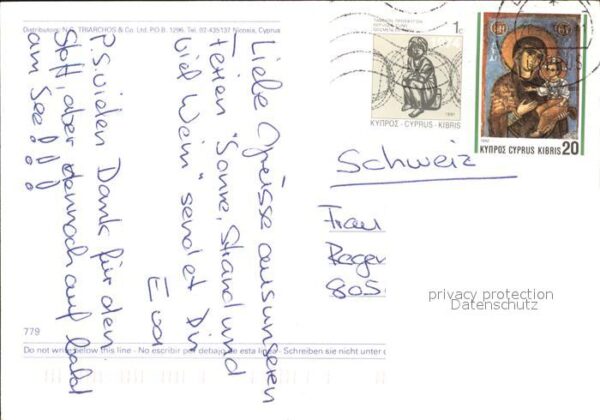 Distributors: N.S. TRIARCHOS & Co. Ltd. P.O.B. 1296, Tel. 02-435137 Nicosia, Cyprus
Liebe Grüsse aus unseren
Ferien "Sonne, Strand und
viel Wein" sendet Dir
Eva
P.S. vielen Dank für den
Stoff, aber dennoch auf bald
am See!!!
779
Do not write below this line - No escribir por debajo de esta linea - Schreiben sie nicht unter
1c
1991
ΚΥΠΡΟΣ - CYPRUS - KIBRIS
ΚΥΠΡΟΣ CYPRUS KIBRIS 20
Schweiz
Frau
805
privacy protection
Datenschutz